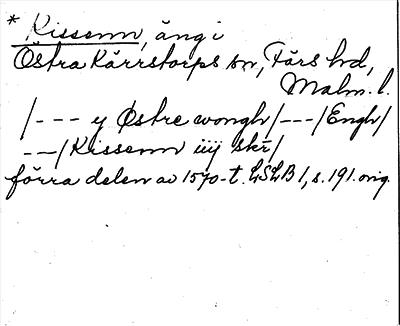 * Kissenn, äng i
Östra Kärrstorps sn, Färs hd,
Malm. l.
/--- y Østre wongh/---/Engh/
---/Kissenn iiij skr/
förra delen av 1570-t. LSLB 1, s. 191. orig.